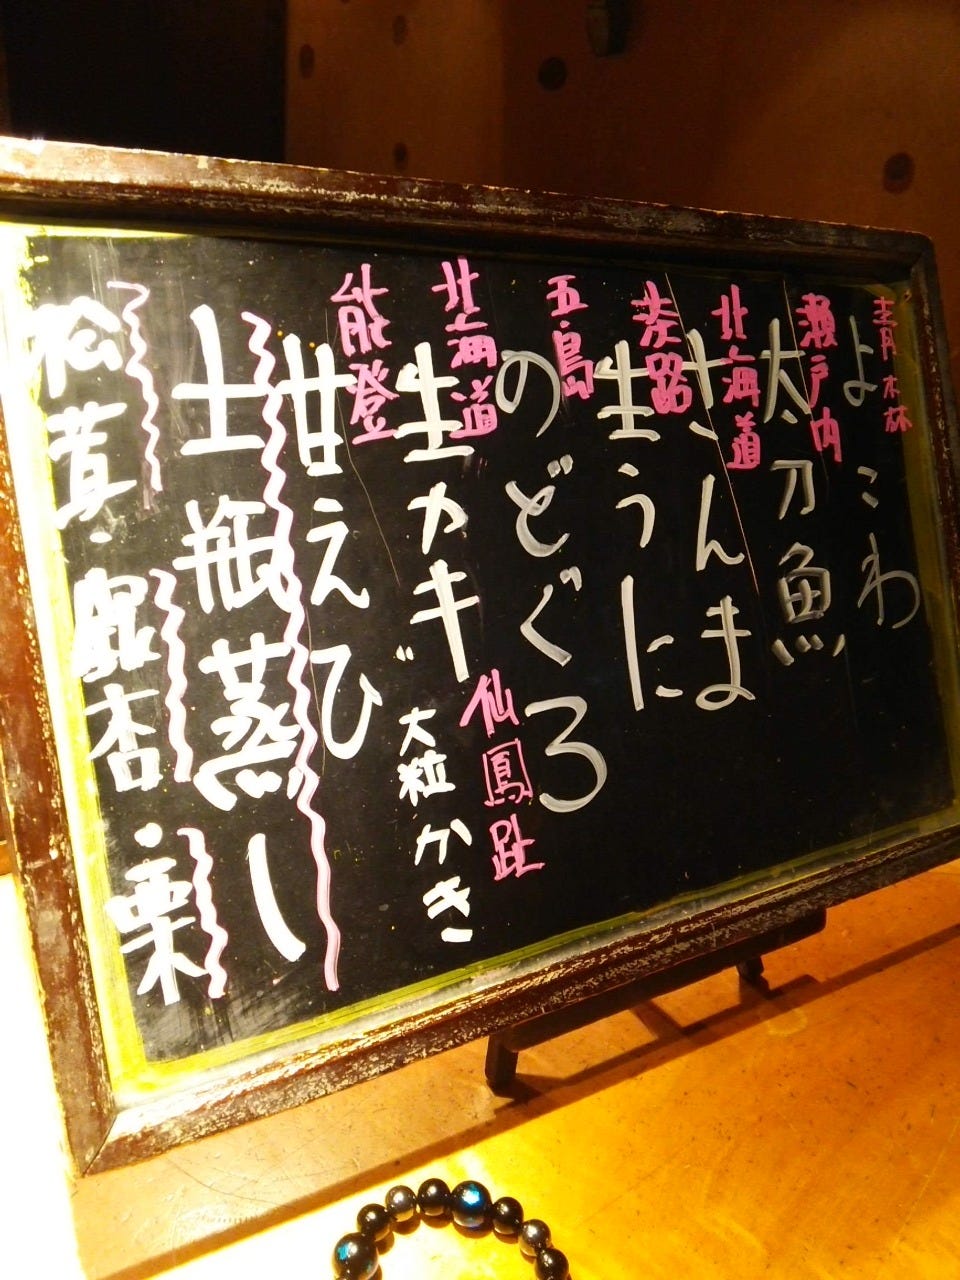 青森
よこわ
瀬戸内
太刀魚
北海道
さんま
淡路
生うに
五島
のどぐろ
北海道
生カキ
仙鳳趾
大粒かき
能登
甘えび
土瓶蒸し
松茸・銀杏・栗